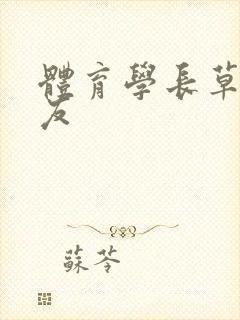 體育學長草
友
蘇苓